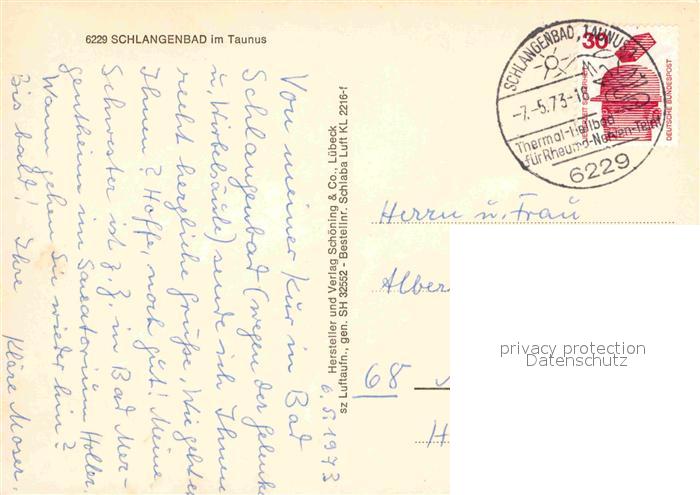 6229 SCHLANGENBAD im Taunus
Von meiner Kur in Bad
Schlangenbad (wegen der Gelenke
u. Wirbelsäule) sende ich Ihnen
recht herzliche Grüße. Wie geht es
Ihnen? Hoffe, noch gut! Meine
Schwester ist z. Z. in Bad Mer-
gentheim im Sanatorium Holler.
Wann gehen Sie wieder hin?
Bis bald! Ihre Kläre Moser.
6.5.1973
Hersteller und Verlag Schöning & Co., Lübeck
sz Luftaufn., gen. SH 32552 - Bestellnr. Schlaba Luft KL 2216-f
SCHLANGENBAD, TAUNUS 1
-7.-5.73-18
Thermal-Heilbad
für Rheuma-Nerven-
6229
30
DEUTSCHE BUNDESPOST
Herrn u. Frau
Alber
68
H
privacy protection
Datenschutz